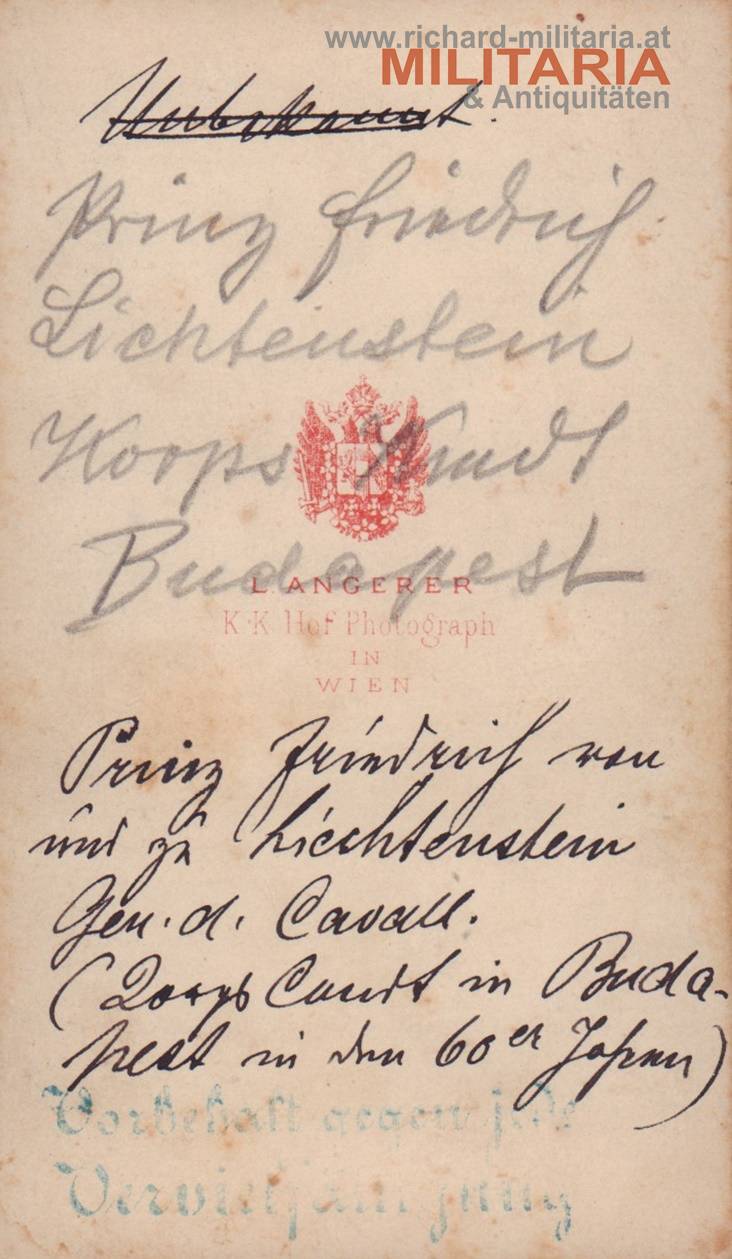 www.richard-militaria.at
MILITARIA
& Antiquitäten
Unbekannt.
Prinz Friedrich
Lichtenstein
Korps Kmdt
Budapest
L. ANGERER
K. K. Hof Photograph
IN
WIEN
Prinz Friedrich von
und zu Liechtenstein
Gen. d. Cavall.
(Corps Comdt in Buda-
pest in den 60er Jahren)
Vorbehalt gegen jede
Vervielfältigung